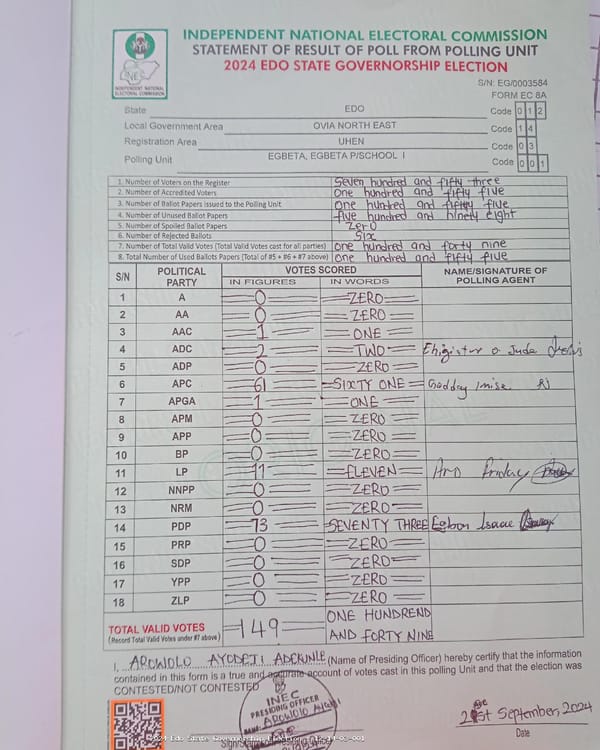 INDEPENDENT NATIONAL ELECTORAL COMMISSION
STATEMENT OF RESULT OF POLL FROM POLLING UNIT
2024 EDO STATE GOVERNORSHIP ELECTION
INEC
INDEPENDENT NATIONAL
ELECTORAL COMMISSION
S/N: EG/0003584
FORM EC 8A
State EDO Code 0 1 2
Local Government Area OVIA NORTH EAST Code 1 4
Registration Area UHEN Code 0 3
Polling Unit EGBETA, EGBETA P/SCHOOL I Code 0 0 1
1. Number of Voters on the Register Seven hundred and fifty three
2. Number of Accredited Voters One hundred and fifty five
3. Number of Ballot Papers Issued to the Polling Unit One hundred and fifty five
4. Number of Unused Ballot Papers five hundred and ninety eight
5. Number of Spoiled Ballot Papers Zero
6. Number of Rejected Ballots Six
7. Number of Total Valid Votes (Total Valid Votes cast for all parties) One hundred and forty nine
8. Total Number of Used Ballots Papers (Total of #5 + #6 + #7 above) One hundred and fifty five
S/N POLITICAL PARTY VOTES SCORED IN FIGURES IN WORDS NAME/SIGNATURE OF POLLING AGENT
1 A 0 ZERO
2 AA 0 ZERO
3 AAC 1 ONE
4 ADC 2 TWO Jude
5 ADP 0 ZERO
6 APC 61 SIXTY ONE
7 APGA 1 ONE
8 APM 0 ZERO
9 APP 0 ZERO
10 BP 0 ZERO
11 LP 11 ELEVEN Friday
12 NNPP 0 ZERO
13 NRM 0 ZERO
14 PDP 73 SEVENTY THREE Egbon Isaac
15 PRP 0 ZERO
16 SDP 0 ZERO
17 YPP 0 ZERO
18 ZLP 0 ZERO
TOTAL VALID VOTES 149 ONE HUNDREND
(Record Total Valid Votes under #7 above) AND FORTY NINE
I, AROWOLO AYODEJI ADEKUNLE (Name of Presiding Officer) hereby certify that the information
contained in this form is a true and accurate account of votes cast in this polling Unit and that the election was
CONTESTED/NOT CONTESTED
INEC
PRESIDING OFFICER
AROWOLO
21st September, 2024
Date